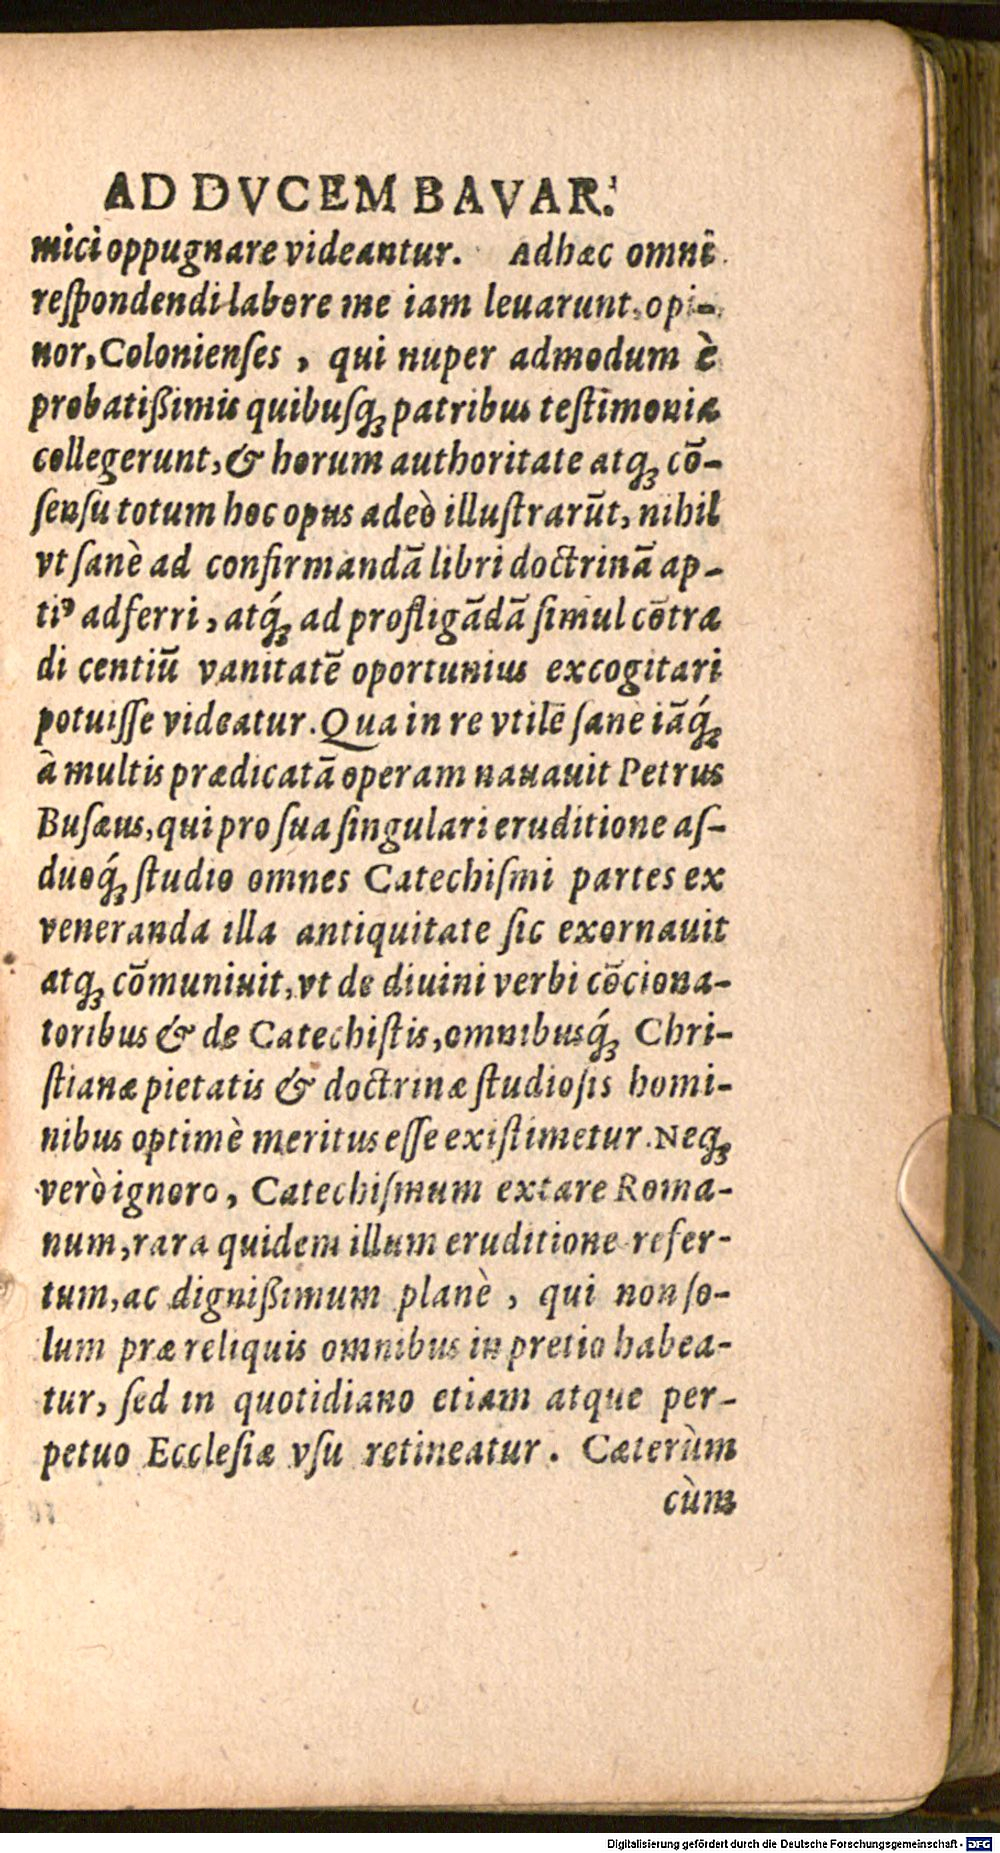 AD DVCEM BAVAR.
mici oppugnare videantur. Adhæc omni
reſpondendi labore me iam leuarunt, opi-
nor, Colonienſes, qui nuper admodum è
probatißimis quibuſq́ꝫ patribus teſtimonia
collegerunt, & horum authoritate atqꝫ cō-
ſenſu totum hoc opus adeò illuſtrarūt, nihil
vt ſanè ad confirmandā libri doctrinā ap-
tiꝰ adferri, atq́ꝫ ad profligādā ſimul cōtra
di centiū vanitatē oportunius excogitari
potuiſſe videatur. Qua in re vtilē ſanè iāq́ꝫ
à multis prædicatā operam nauauit Petrus
Buſæus, qui pro ſua ſingulari eruditione aſ-
duoq́ꝫ ſtudio omnes Catechiſmi partes ex
veneranda illa antiquitate ſic exornauit
atqꝫ cōmuniuit, vt de diuini verbi cōciona-
toribus & de Catechiſtis, omnibusq́ꝫ Chri-
ſtianæ pietatis & doctrinæ ſtudioſis homi-
nibus optimè meritus eſſe exiſtimetur. Neqꝫ
verò ignoro, Catechiſmum extare Roma-
num, rara quidem illum eruditione refer-
tum, ac dignißimum planè, qui non ſo-
lum præ reliquis omnibus in pretio habea-
tur, ſed in quotidiano etiam atque per-
petuo Eccleſiæ vſu retineatur. Cæterùm
cùm
Digitalisierung gefördert durch die Deutsche Forschungsgemeinschaft - DFG